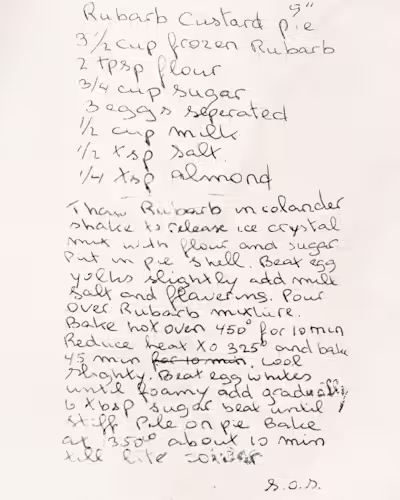 Rubarb Custard pie 9"
3 1/2 cup frozen Rubarb
2 tpsp flour
3/4 cup sugar
3 eggs seperated
1/2 cup milk
1/2 tsp salt.
1/4 tsp almond
Thaw Rubarb in colander
shake to release ice crystal
mix with flour and sugar
put in pie shell. Beat egg
yolks slightly add milk
salt and flavering. Pour
over Rubarb mixture.
Bake hot oven 450° for 10 min
Reduce heat to 325° and bake
45 min for 10 min. Cool
slighty. Beat egg whites
until foamy add gradually
6 tbsp sugar beat until
stiff Pile on pie Bake
at 350° about 10 min
till lite
S.O.S.